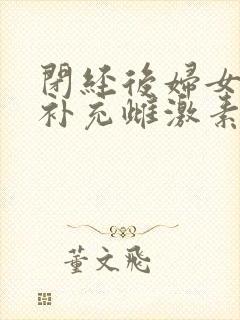 閉經後婦女
补充雌激素
董文飛